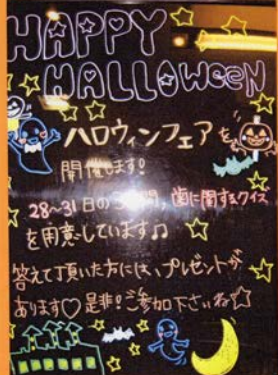 HAPPY
HALLOWEEN
ハロウィンフェアを
開催します!
28~31日の 間, 歯に関するクイズ
を用意しています♫
答えて頂いた方には、プレゼントが
あります♡ 是非!ご参加下さいね☆